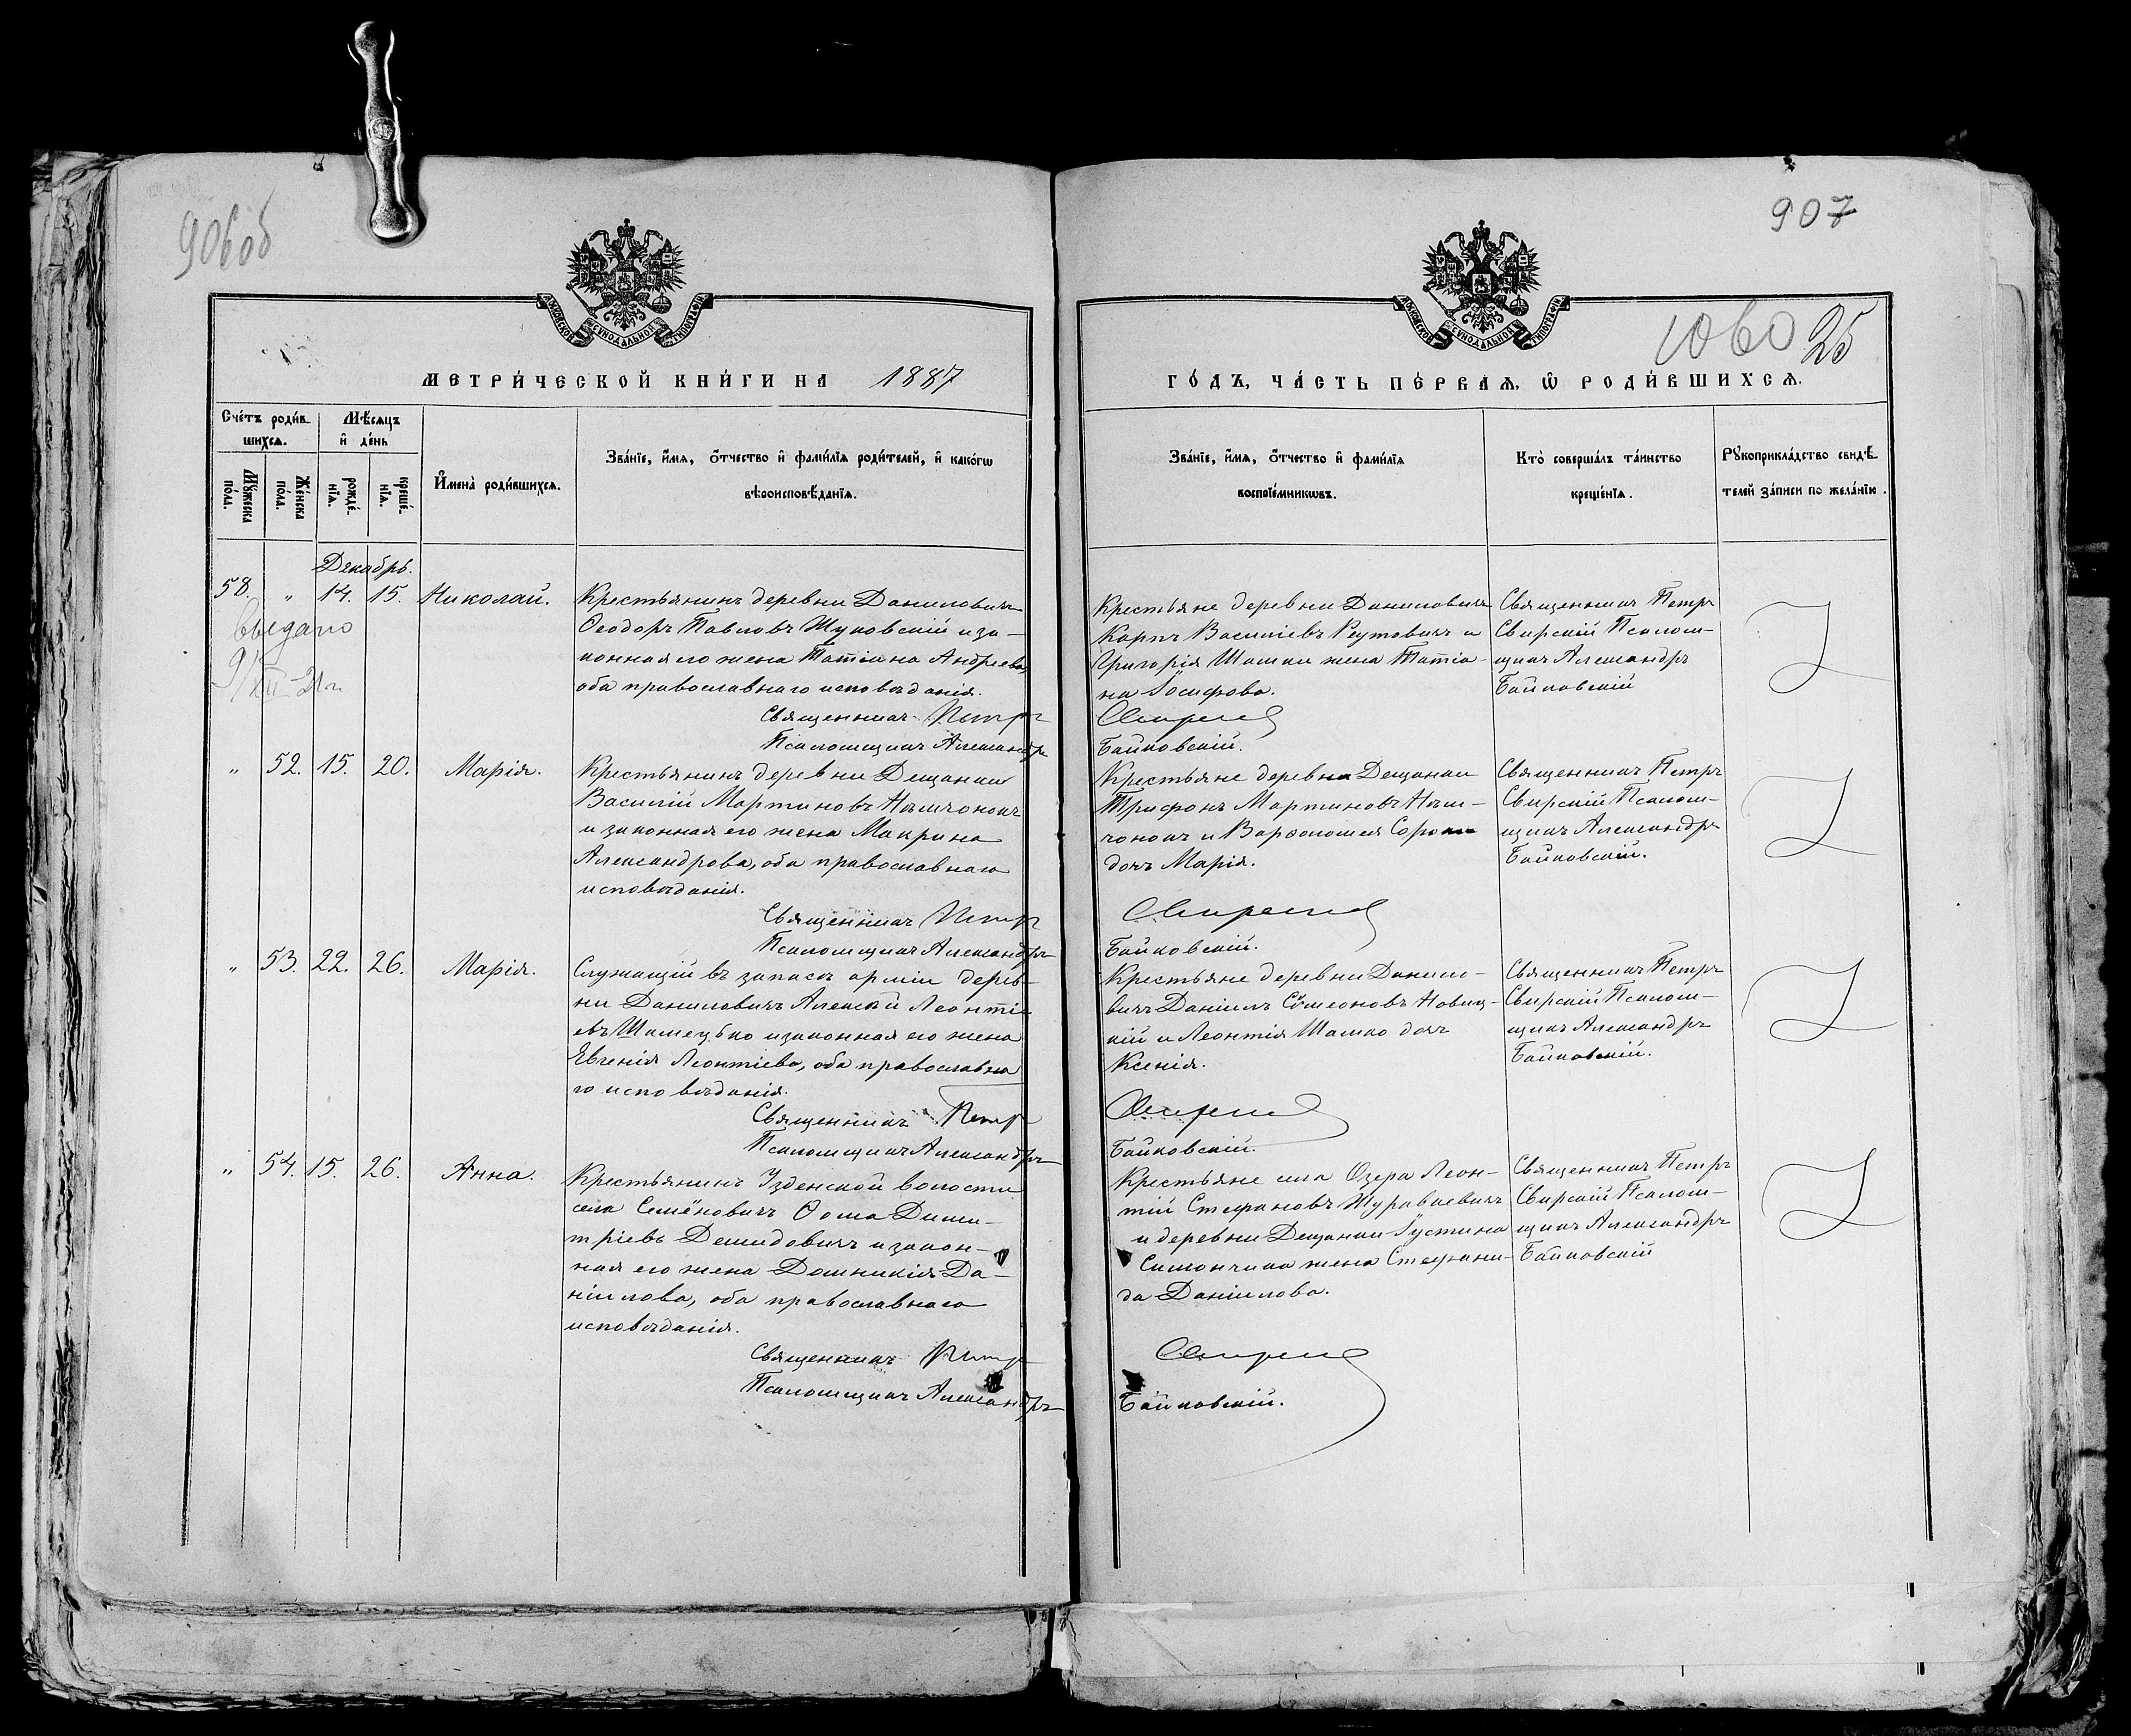 906об
907
1060 25
МОСКОВСКОЙ СѴНОДАЛЬНОЙ ТИПОГРАФІИ
МОСКОВСКОЙ СѴНОДАЛЬНОЙ ТИПОГРАФІИ
МЕТРИ́ЧЕСКОЙ КНИ́ГИ НА 1887
ГО́ДЪ, ЧА́СТЬ ПЕ́РВАѦ, Ѽ РОДИ́ВШИХСѦ.
Сче́тъ роди́в-
шихсѧ.
Мѣ́сѧцъ
и҆ де́нь
Мꙋ́жеска по́ла.
Же́нска по́ла.
рожде́-
нїѧ.
креще́-
нїѧ.
И҆мена̀ роди́вшихсѧ.
Зва́нїе, и҆́мѧ, ѻ҆́тчество и҆ фами́лїѧ роди́телей, и҆ како́гѡ
вѣроисповѣ́данїѧ.
Зва́нїе, и҆́мѧ, ѻ҆́тчество и҆ фами́лїѧ
воспрїе́мникѡвъ.
Кто̀ соверша́лъ та́инство
креще́нїѧ.
Рꙋкоприкла́дство свидѣ́-
телей за́писи по жела́нїю.
Декабрь.
58. " 14. 15. Николай.
Выдано
9/XII-21г.
Крестьянинъ деревни Даниловичъ
Ѳеодоръ Павловъ Жуковскій и за-
конная его жена Татіана Андреева,
оба православнаго исповѣданія.
Священникъ Петръ
Псаломщикъ Александръ
Крестьяне деревни Даниловичъ
Карпъ Василіевъ Реутовичъ и
Григорія Шашки жена Татіа-
на Іосифова.
Свирскій
Байковскій.
Священникъ Петръ
Свирскій Псалом-
щикъ Александръ
Байковскій
" 52. 15. 20. Марія.
Крестьянинъ деревни Дещанки
Василій Мартиновъ Нѣмчонокъ
и законная его жена Макрина
Александрова, оба православнаго
исповѣданія.
Священникъ Петръ
Псаломщикъ Александръ
Крестьяне деревни Дещанки
Трифонъ Мартиновъ Нѣм-
чонокъ и Варѳоломея Сороки
дочь Марія.
Свирскій
Байковскій.
Священникъ Петръ
Свирскій Псалом-
щикъ Александръ
Байковскій.
" 53. 22. 26. Марія.
Служащій въ запасѣ арміи дерев-
ни Даниловичъ Алексѣй Леонтіе
евъ Шамецько и законная его жена
Евгенія Леонтіева, оба православна
го исповѣданія.
Священникъ Петръ
Псаломщикъ Александръ
Крестьяне деревни Данило-
вичъ Даніилъ Сѵмеоновъ Новиц-
кій и Леонтія Шашко дочь
Ксенія.
Свирскій
Байковскій.
Священникъ Петръ
Свирскій Псалом-
щикъ Александръ
Байковскій.
" 54. 15. 26. Анна.
Крестьянинъ Узденской волости
села Семёновичъ Ѳома Дими-
тріевъ Демидовичъ и закон-
ная его жена Домникія Да-
ніилова, оба православнаго
исповѣданія.
Священникъ Петръ
Псаломщикъ Александръ
Крестьяне села Озера Леон-
тій Стефановъ Журавлевичъ
и деревни Дещанки Іустина
Симончика жена Стефани-
да Даніилова.
Свирскій
Байковскій.
Священникъ Петръ
Свирскій Псалом-
щикъ Александръ
Байковскій